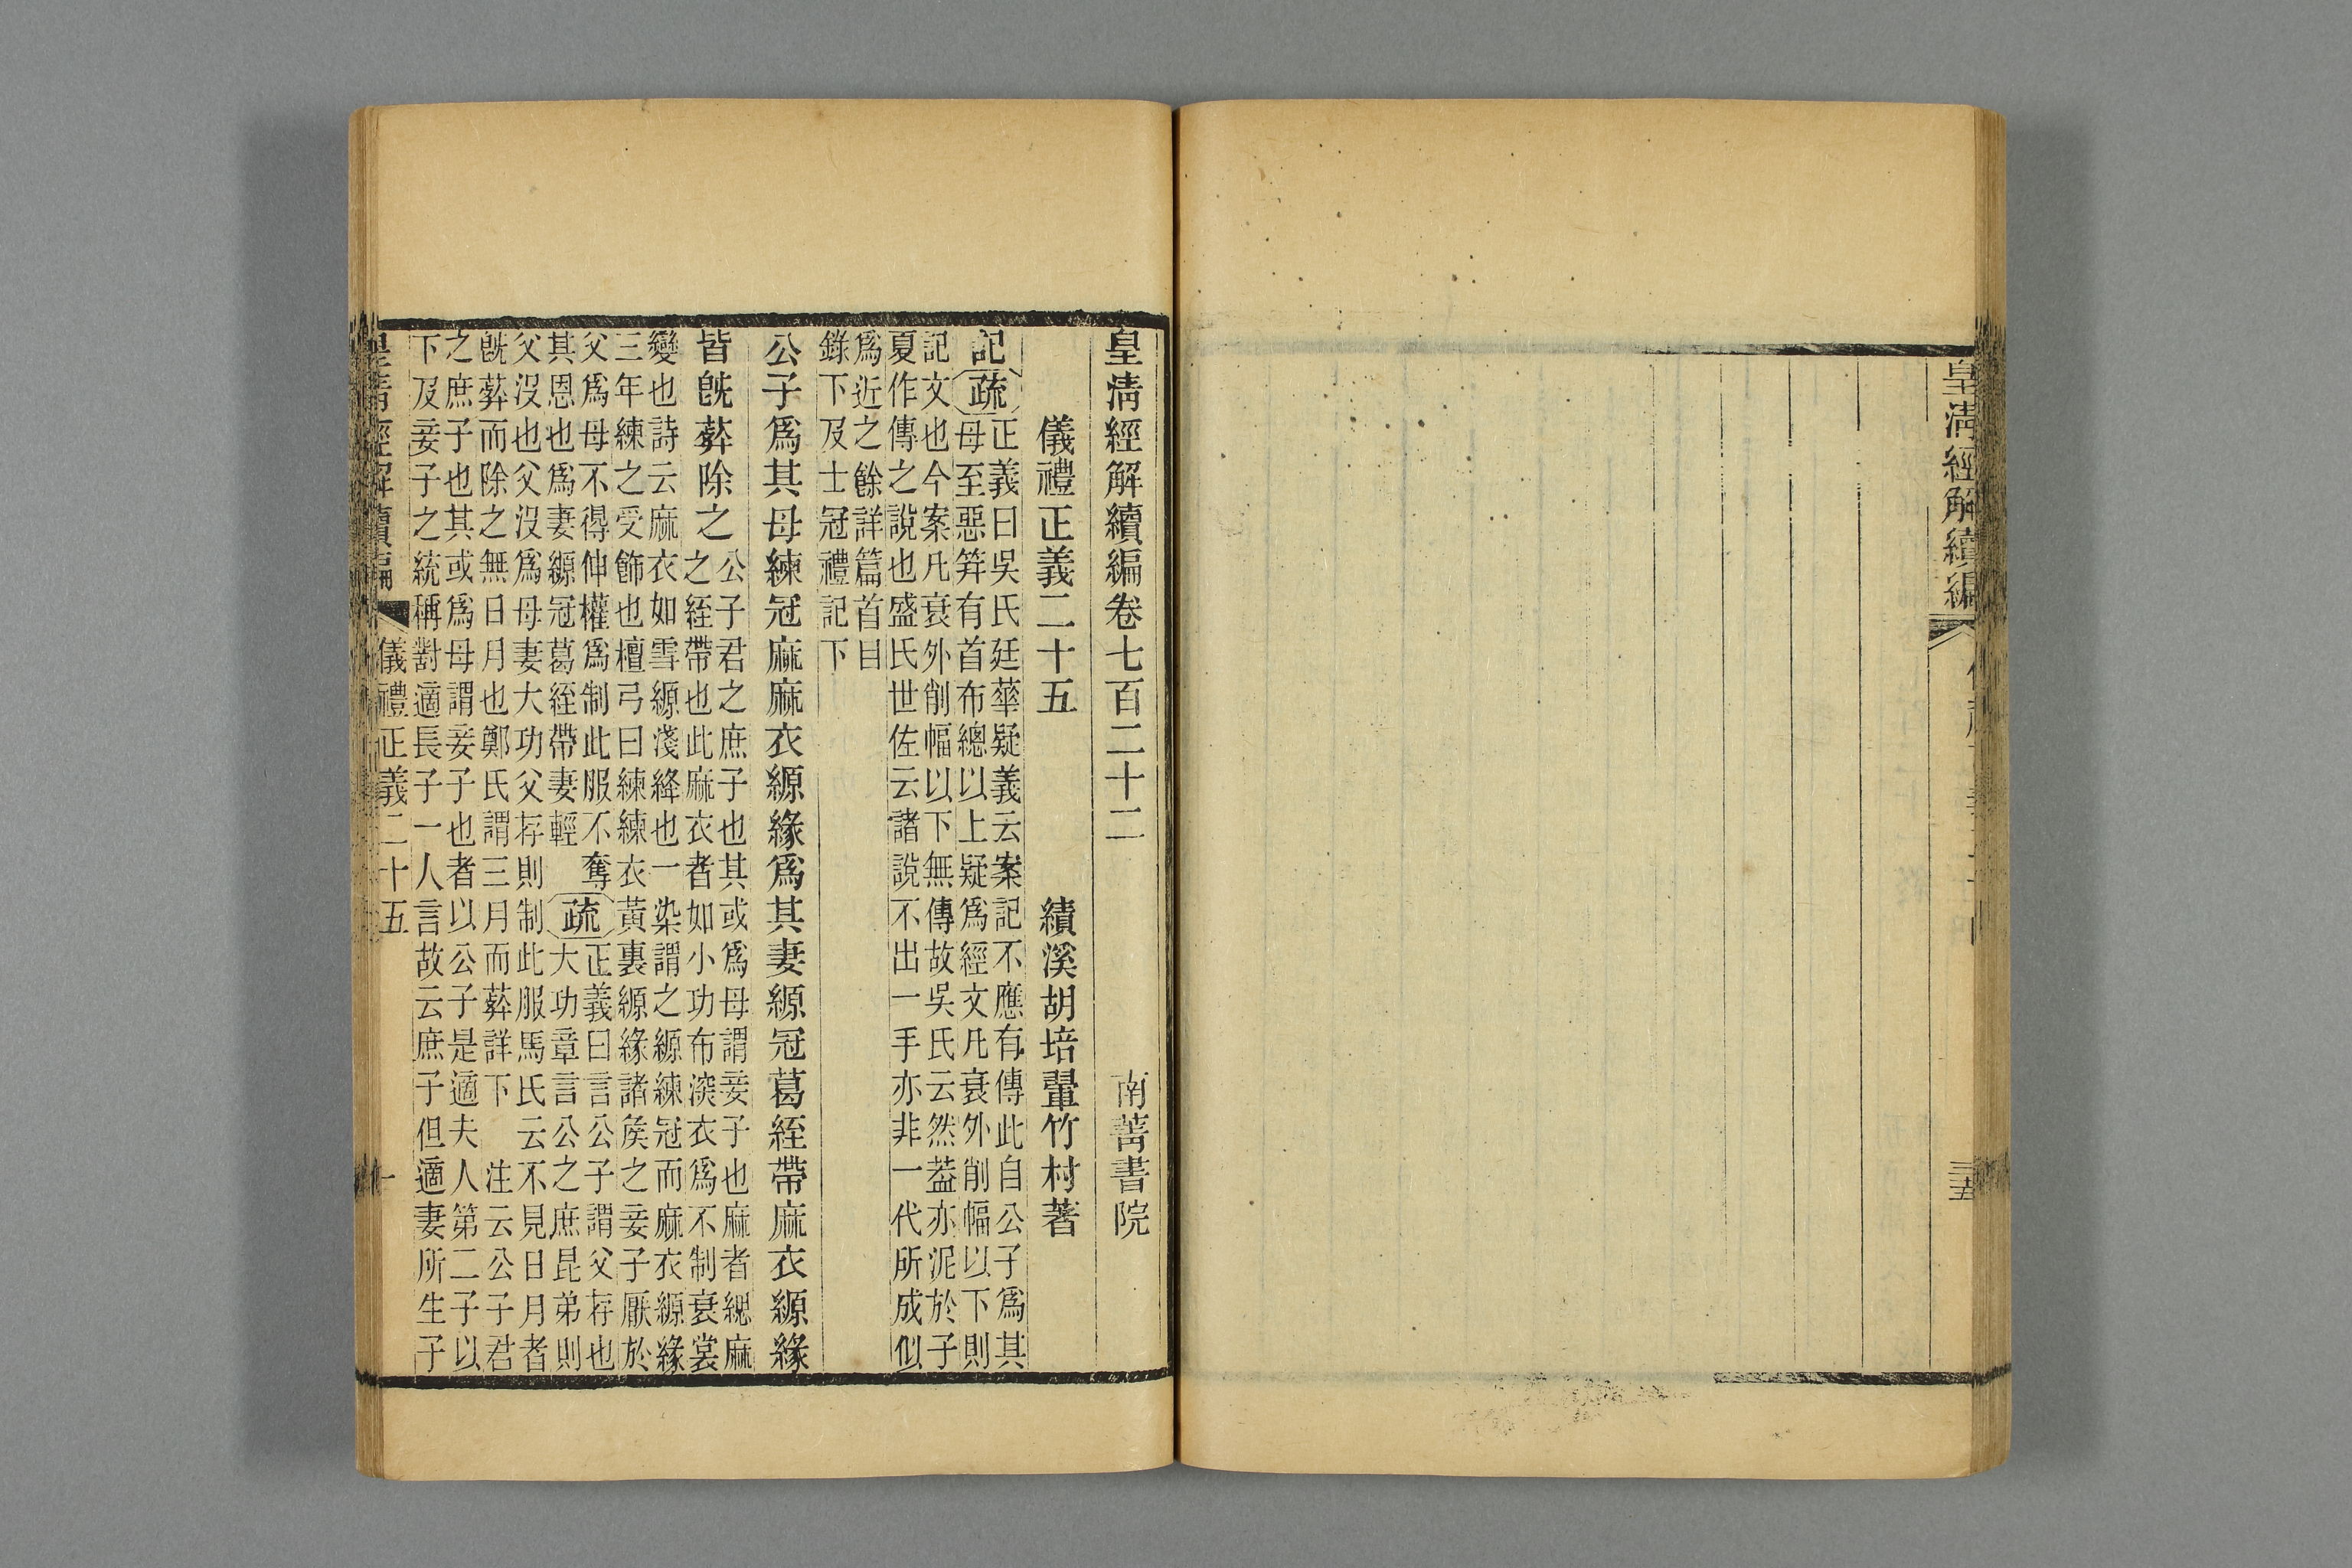 皇清經解續編
三十五
皇清經解續編卷七百二十二
南菁書院
儀禮正義二十五
績溪胡培翬竹村著
記疏
正義曰吳氏廷華疑義云案記不應有傳此自公子爲其
母至惡笄有首布總以上疑爲經文凡衰外削幅以下則
記文也今案凡衰外削幅以下無傳故吳氏云然葢亦泥於子
夏作傳之說也盛氏世佐云諸說不出一手亦非一代所成似
爲近之餘詳篇首目
錄下及士冠禮記下
公子爲其母練冠麻麻衣縓緣爲其妻縓冠葛絰帶麻衣縓緣
皆旣葬除之
公子君之庶子也其或爲母謂妾子也麻者緦麻
之絰帶也此麻衣者如小功布深衣爲不制衰裳
變也詩云麻衣如雪縓淺絳也一染謂之縓練冠而麻衣縓緣
三年練之受飾也檀弓曰練練衣黃裏縓緣諸矦之妾子厭於
父爲母不得伸權爲制此服不奪
其恩也爲妻縓冠葛絰帶妻輕
疏
正義曰言公子謂父存也
大功章言公之庶昆弟則
父沒也父沒爲母妻大功父存則制此服馬氏云不見日月者
旣葬而除之無日月也鄭氏謂三月而葬詳下　注云公子君
之庶子也其或爲母謂妾子也者以公子是適夫人第二子以
下及妾子之統稱對適長子一人言故云庶子但適妻所生子
皇清經解續編
儀禮正義二十五
一